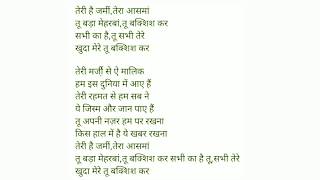 तेरी है जमीं,तेरा आसमां
तू बड़ा मेहरबां,तू बक्शिश कर
सभी का है,तू सभी तेरे
खुदा मेरे तू बक्शिश कर
तेरी मर्ज़ी से ऐ मालिक
हम इस दुनिया में आए हैं
तेरी रहमत से हम सब ने
ये जिस्म और जान पाए हैं
तू अपनी नज़र हम पर रखना
किस हाल में है ये खबर रखना
तेरी है जमीं,तेरा आसमां
तू बड़ा मेहरबां,तू बक्शिश कर सभी का है तू,सभी तेरे
खुदा मेरे तू बक्शिश कर